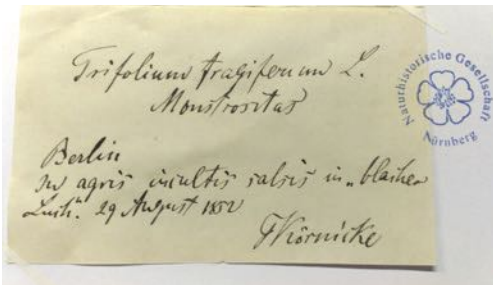 Trifolium fragiferum L.
Monstrositas
Berlin
in agris incultis salsis in „blanker
29 August 1852
FKörnicke
Naturhistorische Gesellschaft
Nürnberg